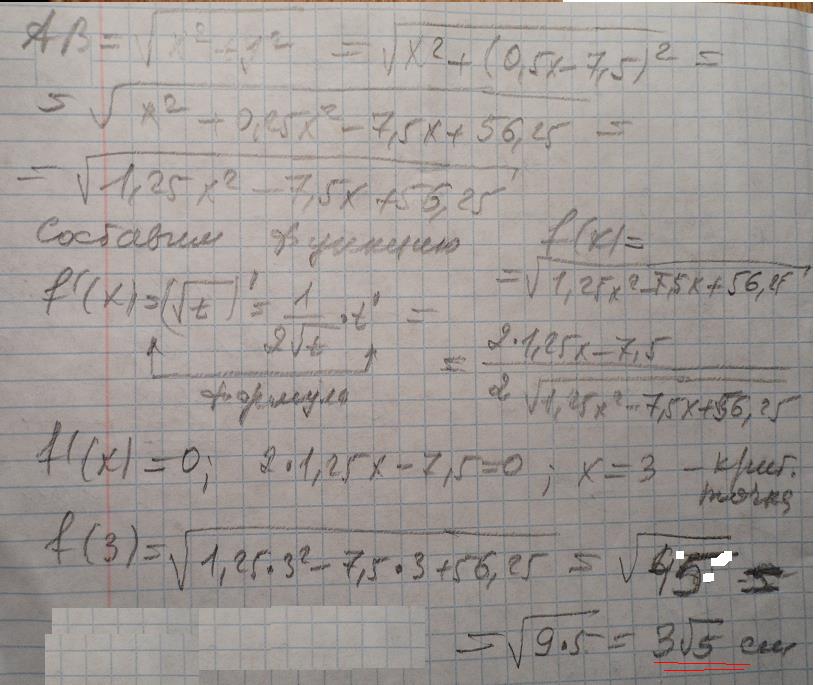 AB = √(x² + y²) = √(x² + (0,5x - 7,5)²) =
= √(x² + 0,25x² - 7,5x + 56,25) =
= √(1,25x² - 7,5x + 56,25)
Составим функцию f(x) =
= √(1,25x² - 7,5x + 56,25)
f'(x) = (√t)' = 1/(2√t) · t' =
формула
= (2·1,25x - 7,5)/(2√(1,25x² - 7,5x + 56,25))
f'(x) = 0; 2·1,25x - 7,5 = 0; x = 3 - крит. точка
f(3) = √(1,25·3² - 7,5·3 + 56,25) = √45 =
= √(9·5) = 3√5 см